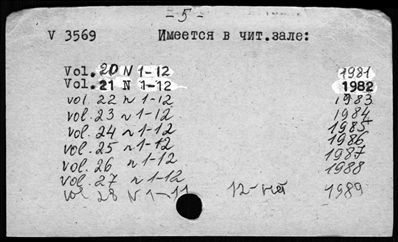 - 5 -
V 3569 Имеется в чит.зале:
Vol. 20 N 1-12 1981
Vol. 21 N 1-12 1982
vol. 22 n 1-12 1983
vol. 23 n 1-12 1984
vol. 24 n 1-12 1985
vol. 25 n 1-12 1986
vol. 26 n 1-12 1987
vol. 27 n 1-12 1988
vol 28 N 1-11 12-на 1989